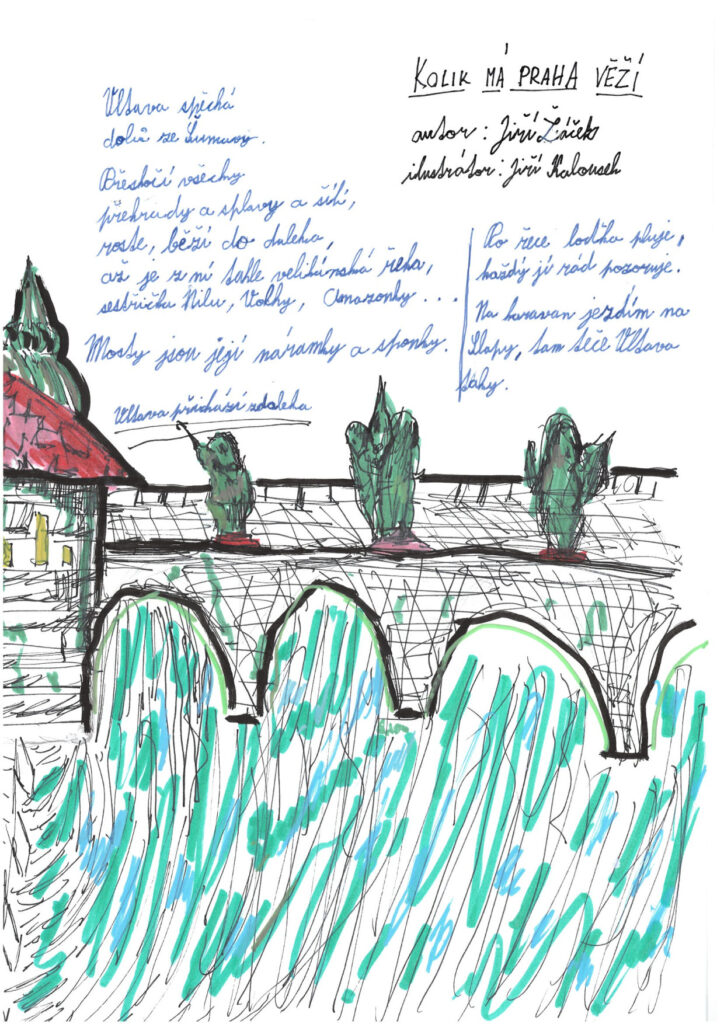 KOLIK MÁ PRAHA VĚŽÍ
autor: Jiří Žáček
ilustrátor: Jiří Kalousek
Vltava spěchá
dolů ze Šumavy.
Přeskočí všechy
přehrady a splavy a sílí,
roste, běží do daleka,
až je z ní tahle velikánská řeka,
sestřička Nilu, Volhy, Amazonky ...
Mosty jsou její náramky a sponky.
Vltava přichází zdaleka
Po řece loďka pluje,
každý jí rád pozoruje.
Na karavan jezdím na
Slapy, tam teče Vltava
taky.